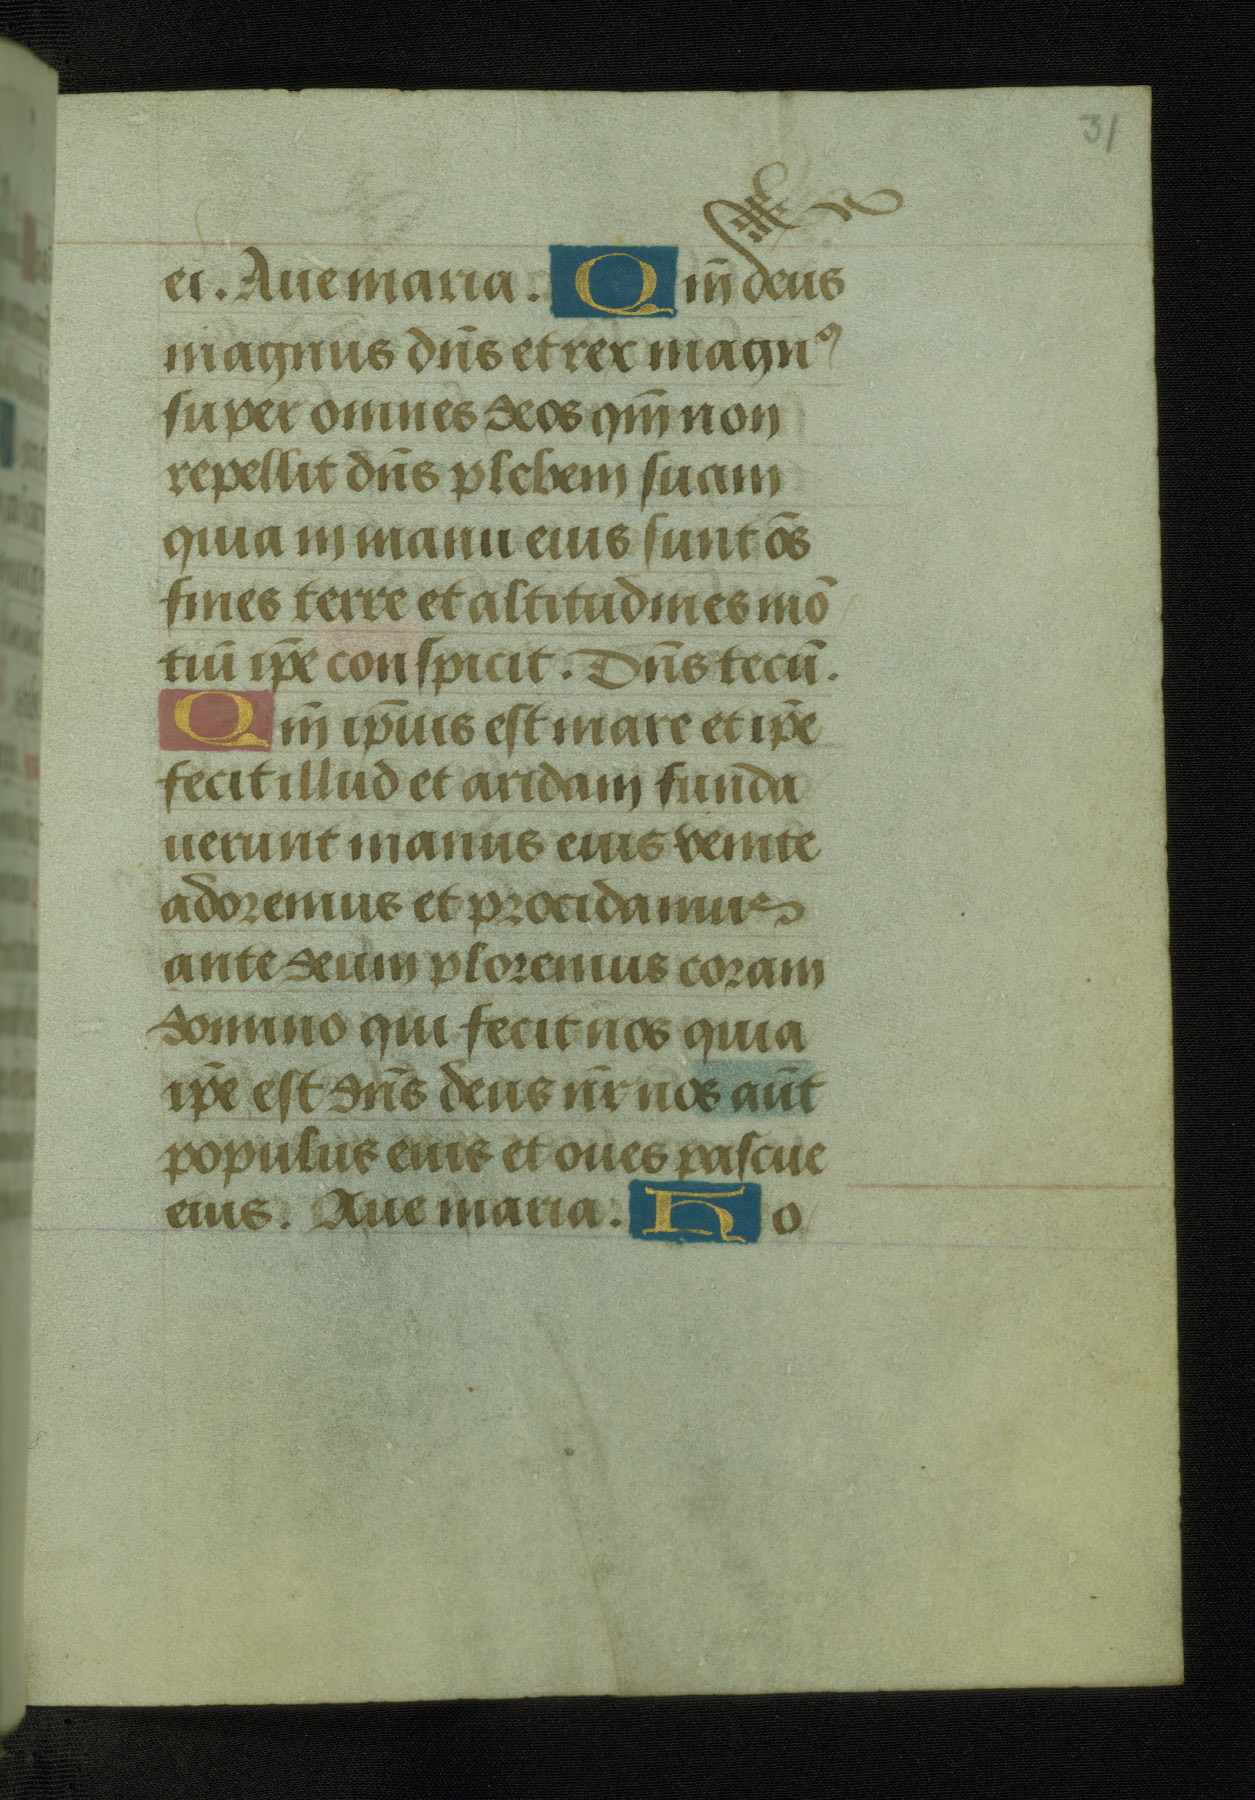 31
ei. Aue maria. Qm̄ deus
magnus dn̄s et rex magnꝰ
super omnes deos qm̄ non
repellit dn̄s plebem suam
quia in manu eius sunt oēs
fines terre et altitudines mō
tiū ip̄e conspicit. Dn̄s tecū.
Qm̄ ip̄ius est mare et ip̄e
fecit illud et aridam funda
uerunt manus eius venite
adoremus et procidamus
ante deum ploremus coram
domino qui fecit nos quia
ip̄e est dn̄s deus nr̄ nos aūt
populus eius et oues pascue
eius. Aue maria. Ho